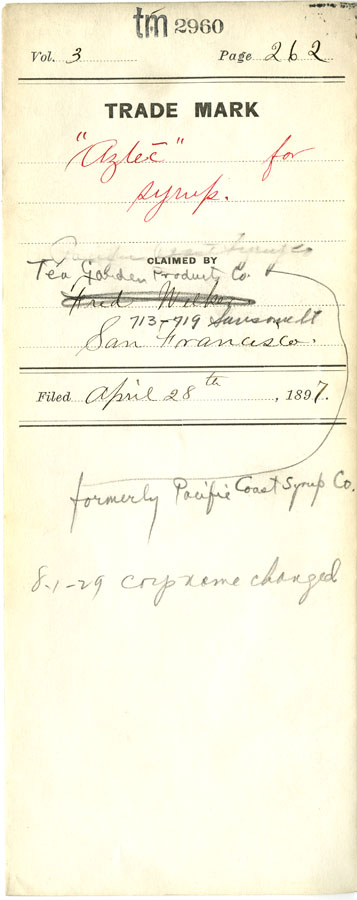 tm 2960
Vol. 3 Page 262
TRADE MARK
"Aztec" for
syrup.
CLAIMED BY
Tea Garden Products Co.
Fred
713-719 Sansome St
San Francisco.
Filed April 28th, 1897.
formerly Pacific Coast Syrup Co.
8-1-29 corp name changed